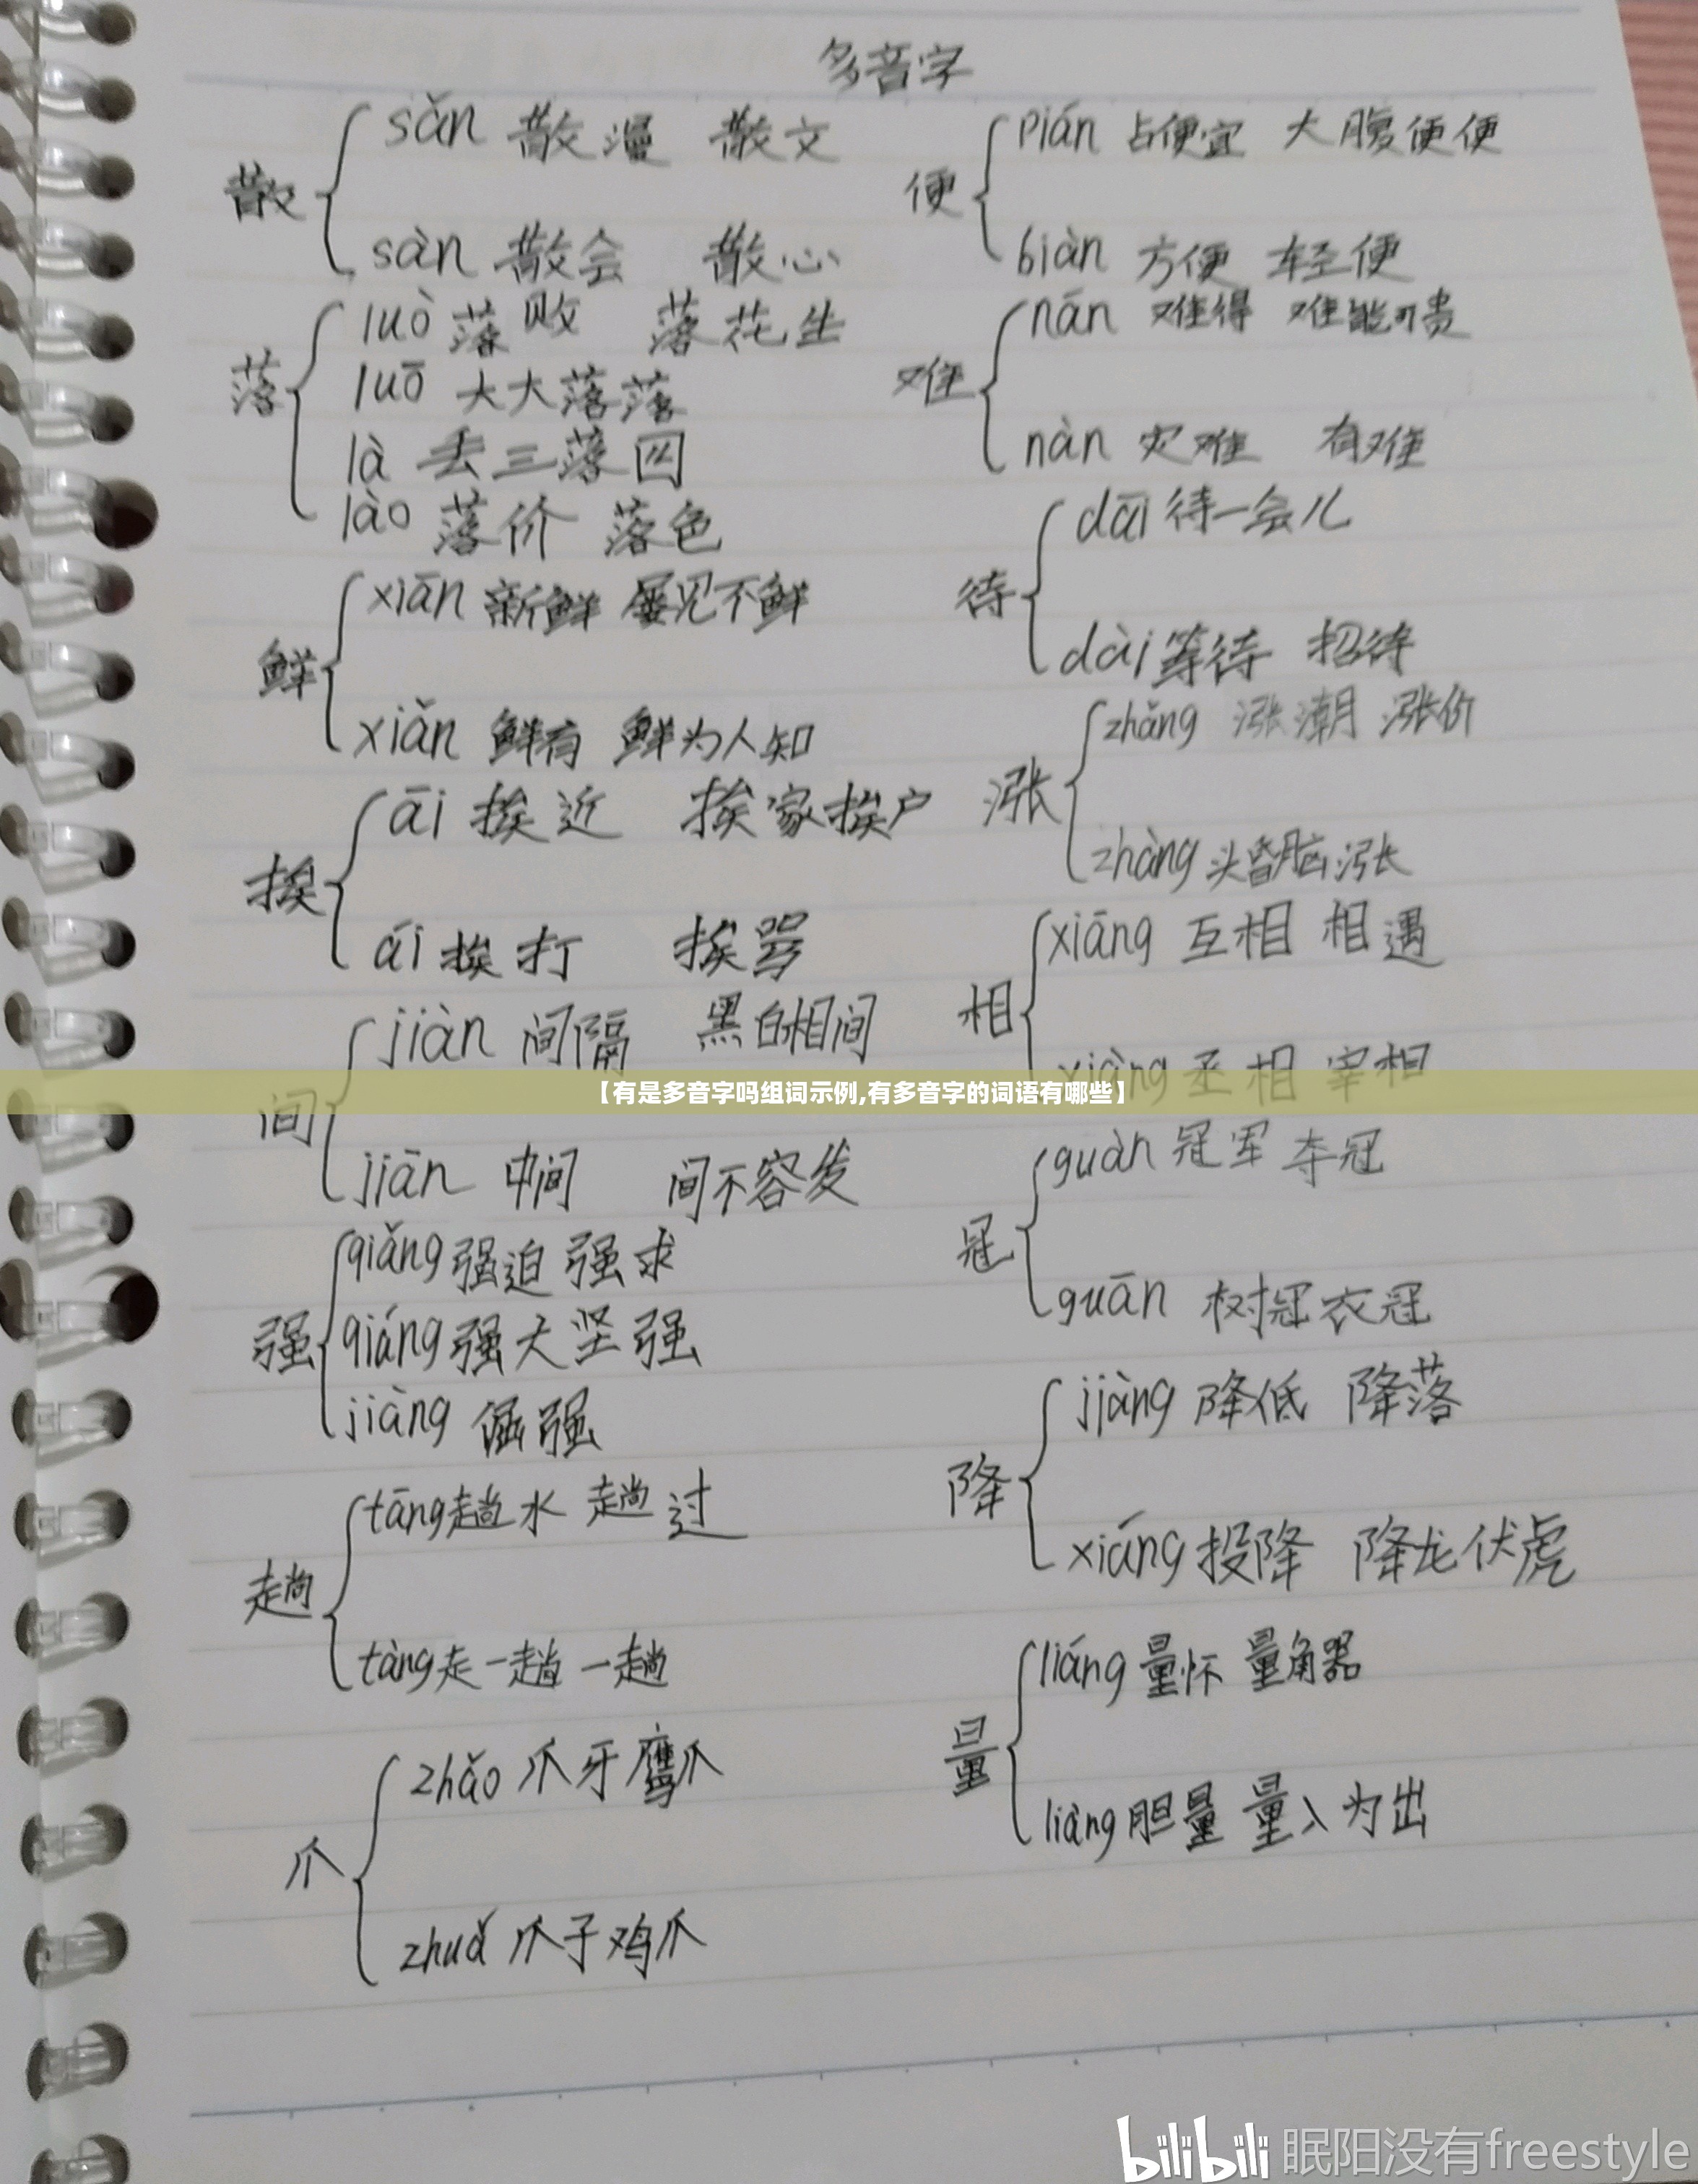 多音字
散
sǎn 散漫 散文
sàn 散会 散心
落
luò 落败 落花生
luō 大大落落
là 丢三落四
lào 落价 落色
鲜
xiān 新鲜 屡见不鲜
xiǎn 鲜有 鲜为人知
挨
āi 挨近 挨家挨户
ái 挨打 挨骂
间
jiàn 间隔 黑白相间
jiān 中间 间不容发
强
qiǎng 强迫 强求
qiáng 强大 坚强
jiàng 倔强
趟
tāng 趟水 趟过
tàng 走一趟 一趟
爪
zhǎo 爪牙 鹰爪
zhuǎ 爪子 鸡爪
便
pián 占便宜 大腹便便
biàn 方便 轻便
难
nán 难得 难能可贵
nàn 灾难 有难
待
dāi 待一会儿
dài 等待 招待
涨
zhǎng 涨潮 涨价
zhàng 头昏脑涨
相
xiāng 互相 相遇
xiàng 丞相 宰相
冠
guàn 冠军 夺冠
guān 树冠 衣冠
降
jiàng 降低 降落
xiáng 投降 降龙伏虎
量
liáng 量杯 量角器
liàng 胆量 量入为出
【有是多音字吗组词示例,有多音字的词语有哪些】
bilibili 眠阳没有freestyle